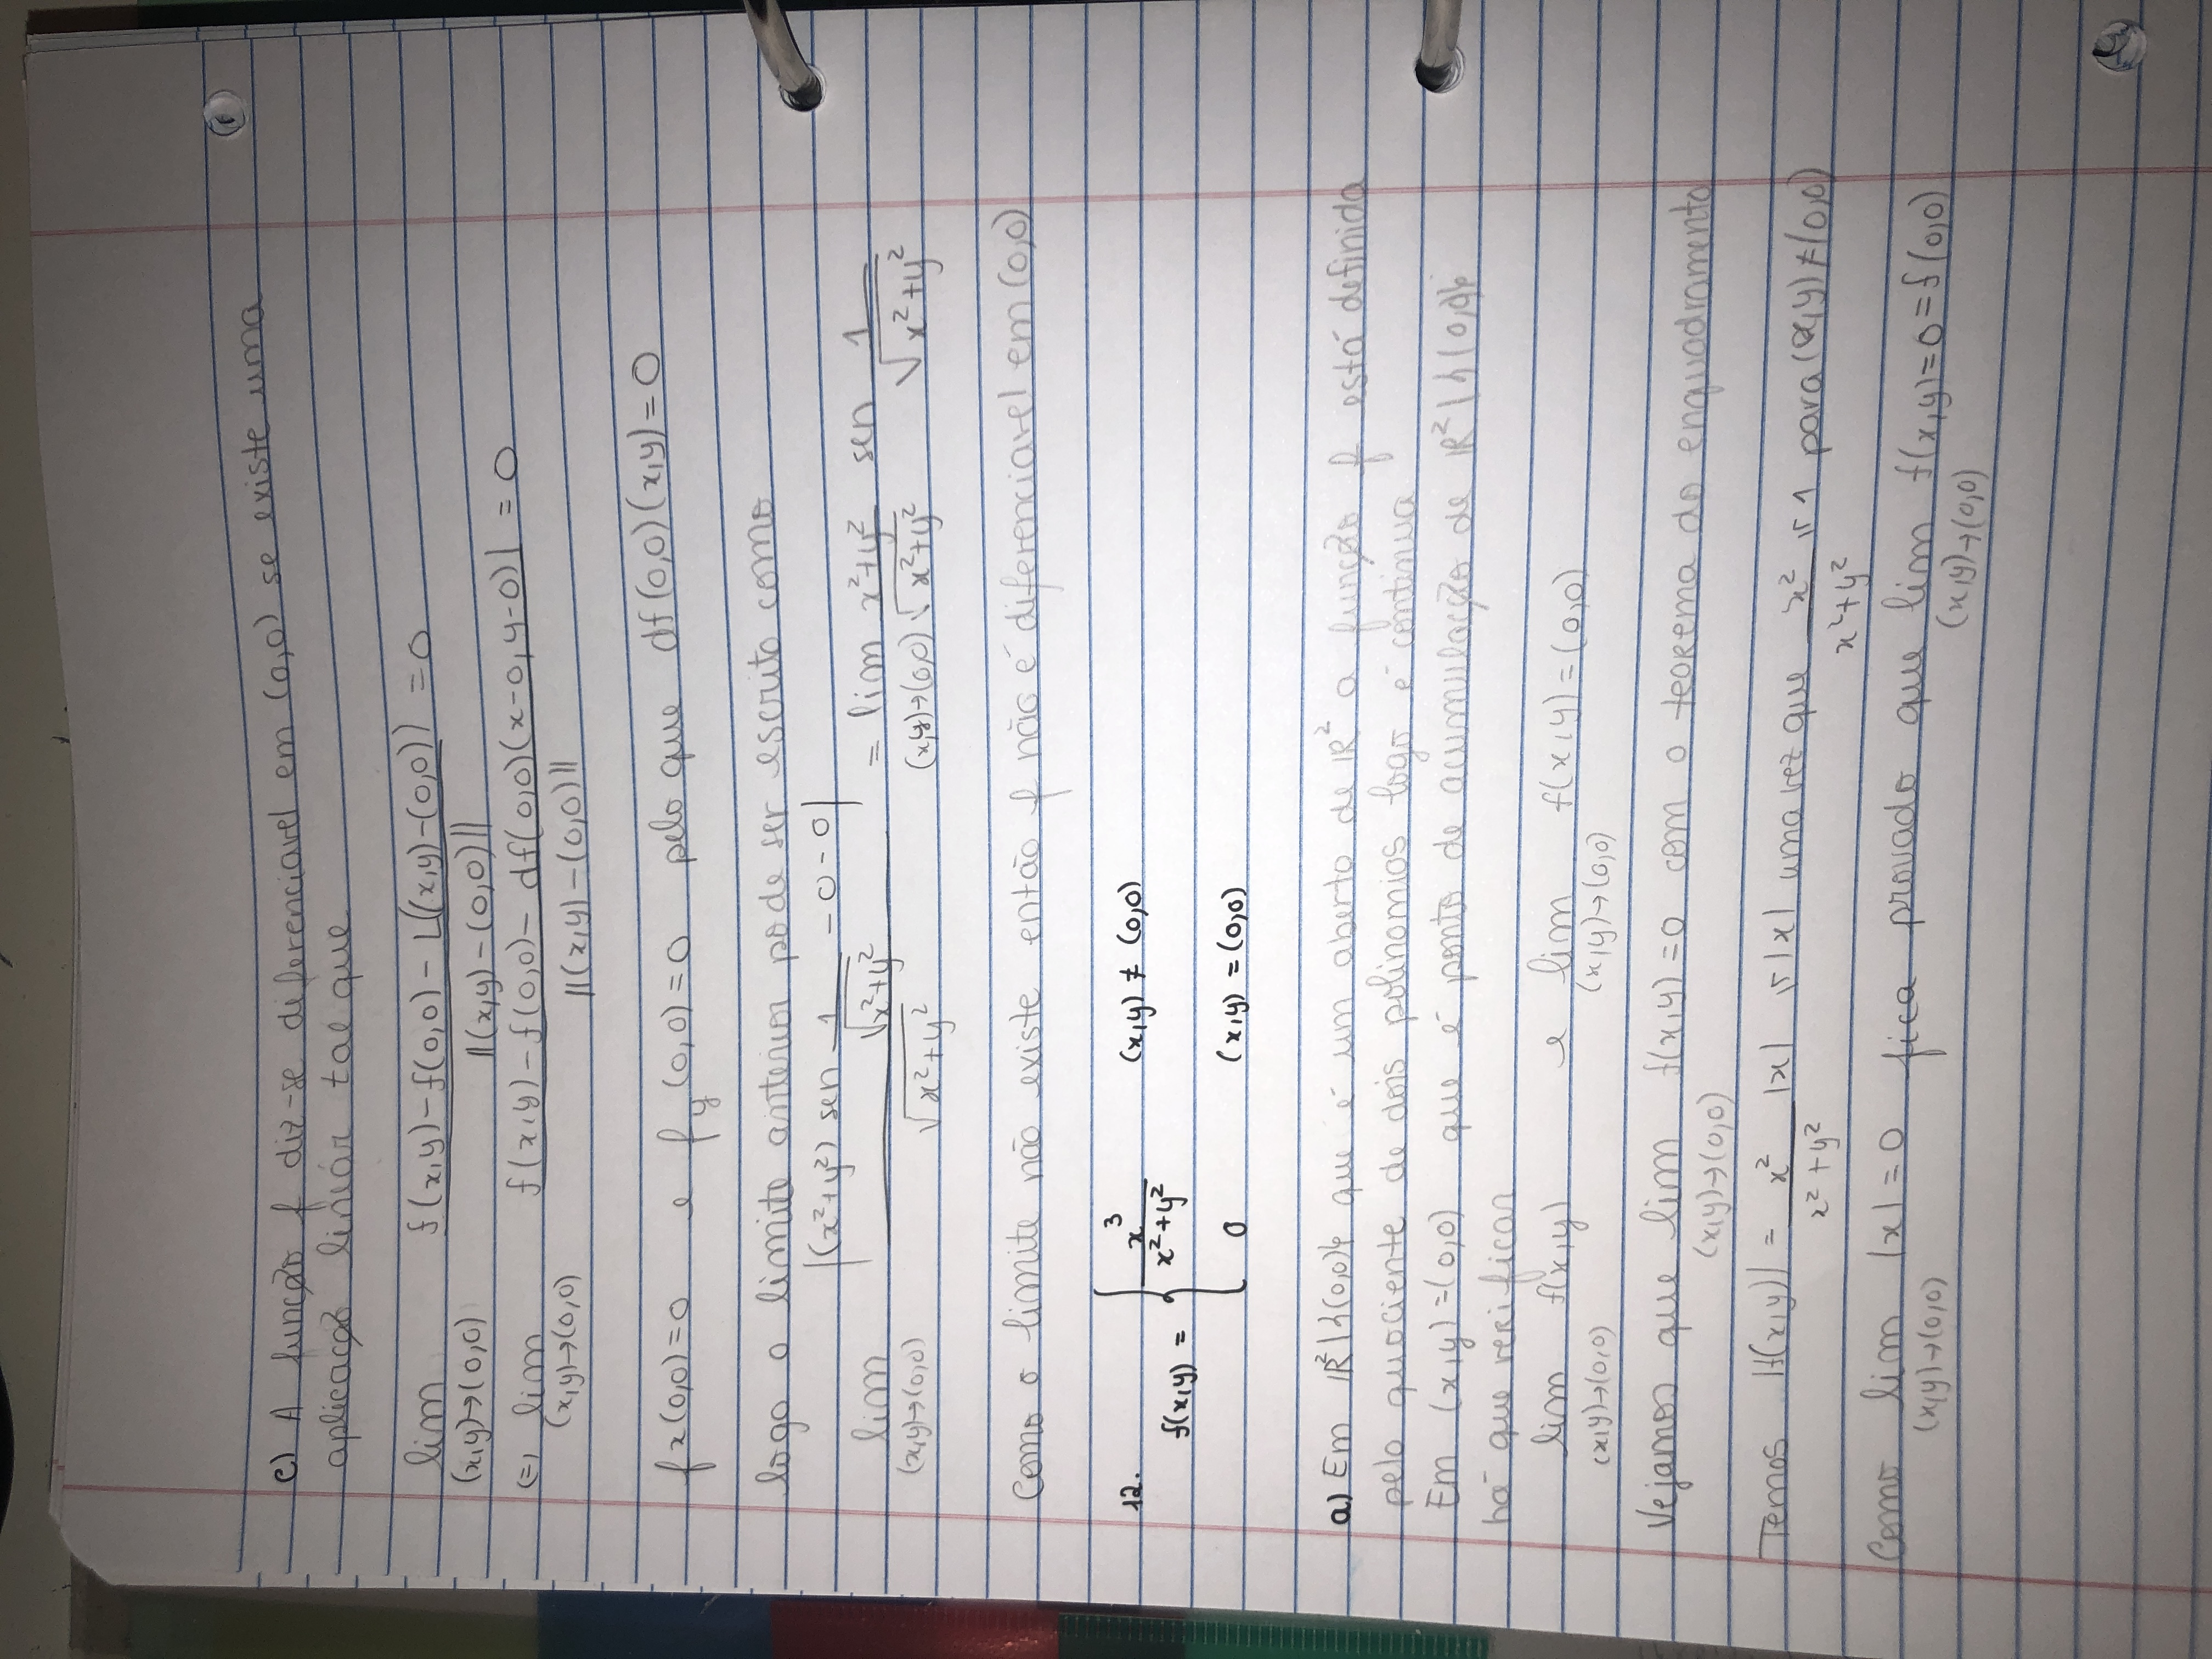 c) A função f diz-se diferenciavel em (0,0) se existe uma
aplicação linear tal que
lim f(x,y)-f(0,0)-L((x,y)-(0,0)) = 0
(x,y)→(0,0) ||(x,y)-(0,0)||
(=) lim f(x,y)-f(0,0)-df(0,0)(x-0,y-0)| = 0
(x,y)→(0,0) ||(x,y)-(0,0)||
fx(0,0)=0 e fy(0,0)=0 pelo que df(0,0)(x,y)=0
logo o limite anterior pode ser escrito como
lim |(x²+y²) sen 1/√x²+y² -0-0| / √x²+y² = lim x²+y²/√x²+y² sen 1/√x²+y²
(x,y)→(0,0) (x,y)→(0,0)
Como o limite não existe então f não é diferenciavel em (0,0)
12.
f(x,y) = { x³/x²+y² (x,y) ≠ (0,0)
0 (x,y) = (0,0)
a) Em IR²\{(0,0)} que é um aberto de IR² a função f está definida
pelo quociente de dois polinomios logo é continua
Em (x,y)=(0,0) que é ponto de acumulação de IR²\{(0,0)}
há que verificar
lim f(x,y) e lim f(x,y)=(0,0)
(x,y)→(0,0) (x,y)→(0,0)
Vejamos que lim f(x,y)=0 com o teorema do enquadramento
(x,y)→(0,0)
Temos |f(x,y)| = x²/x²+y² |x| ≤ |x| uma vez que x²/x²+y² ≤ 1 para (x,y)≠(0,0)
Como lim |x|=0 fica provado que lim f(x,y)=0=f(0,0)
(x,y)→(0,0) (x,y)→(0,0)